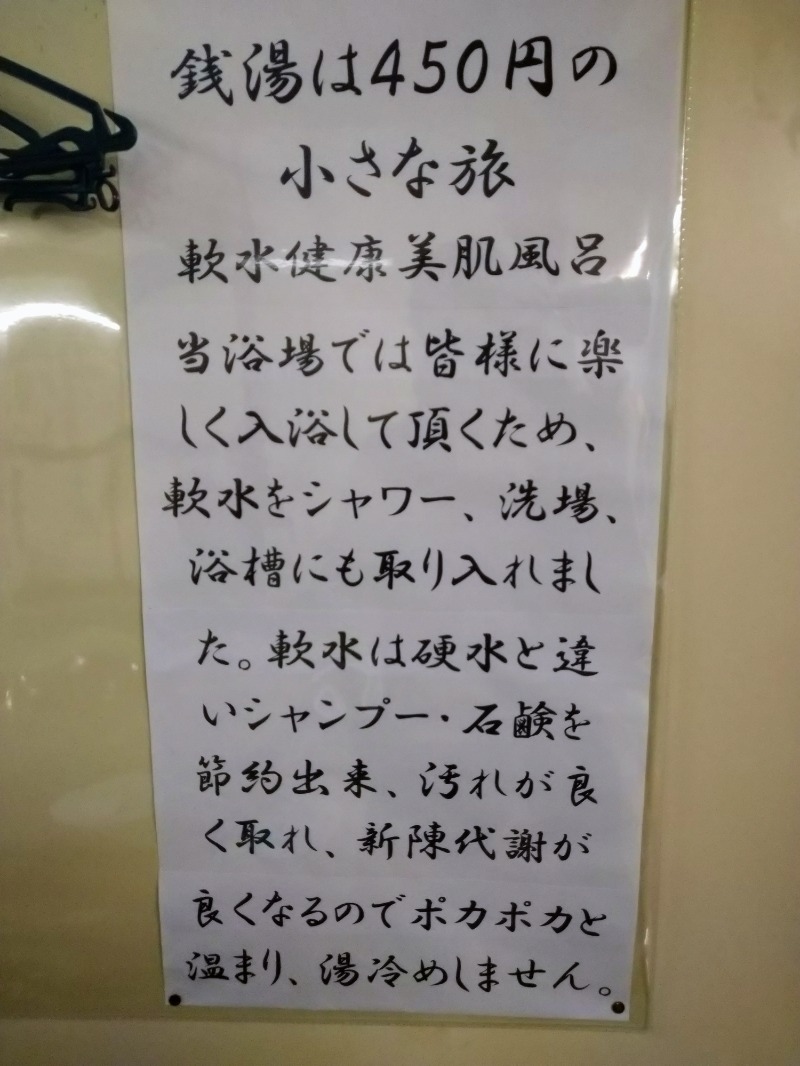 銭湯は450円の
小さな旅
軟水健康美肌風呂
当浴場では皆様に楽
しく入浴して頂くため、
軟水をシャワー、洗場、
浴槽にも取り入れまし
た。軟水は硬水と違
いシャンプー・石鹸を
節約出来、汚れが良
く取れ、新陳代謝が
良くなるのでポカポカと
温まり、湯冷めしません。